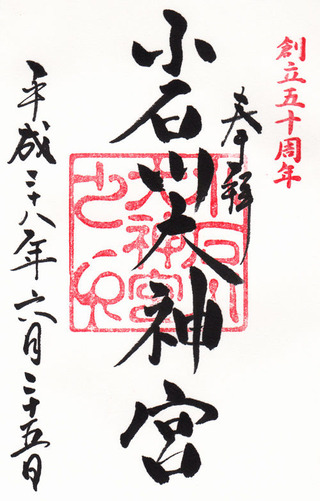 創立五十周年
奉拝
小石川大神宮
小石川
大神宮
之印
平成二十八年六月二十五日